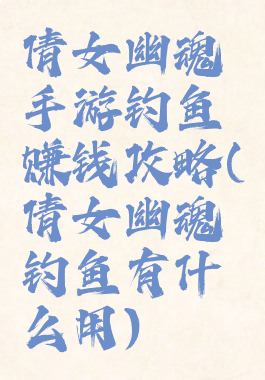 倩女幽魂
手游钓鱼
赚钱攻略(
倩女幽魂
钓鱼有什
么用)